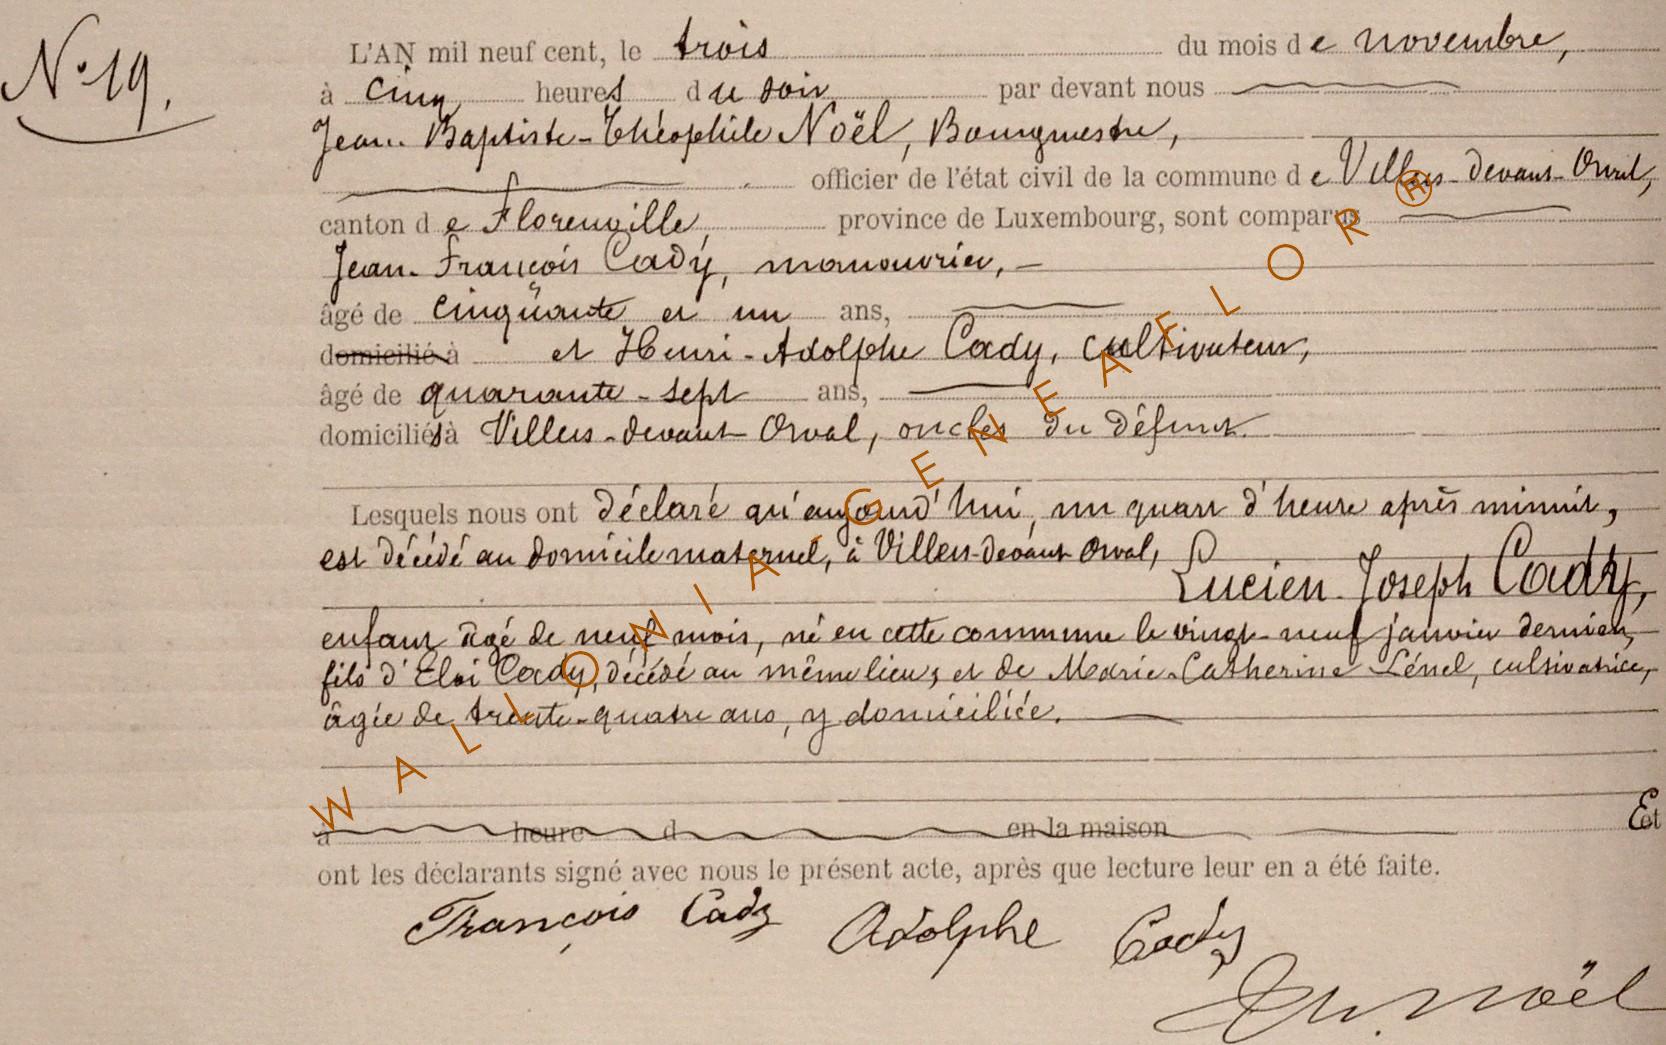 N° 19.
L'AN mil neuf cent, le trois du mois de novembre,
à cinq heures du soir par devant nous
Jean-Baptiste-Théophile Noël, Bourgmestre,
officier de l'état civil de la commune de Villers-devant-Orval,
canton de Florenville, province de Luxembourg, sont comparus
Jean-François Cady, manouvrier,
âgé de cinquante et un ans,
domicilié à et Henri-Adolphe Cady, cultivateur,
âgé de quarante-sept ans,
domiciliés à Villers-devant-Orval, oncles du défunt.
Lesquels nous ont déclaré qu'aujourd'hui, un quart d'heure après minuit,
est décédé au domicile maternel, à Villers-devant-Orval,
Lucien-Joseph Cady,
enfant âgé de neuf mois, né en cette commune le vingt-neuf janvier dernier,
fils d'Eloi Cady, décédé au même lieu, et de Marie-Catherine Lénel, cultivatrice,
âgée de trente-quatre ans, y domiciliée.
à heure d en la maison Et
ont les déclarants signé avec nous le présent acte, après que lecture leur en a été faite.
François Cady Adolphe Cady
Th. Noël
WALLONIA-GENEAFLOR®